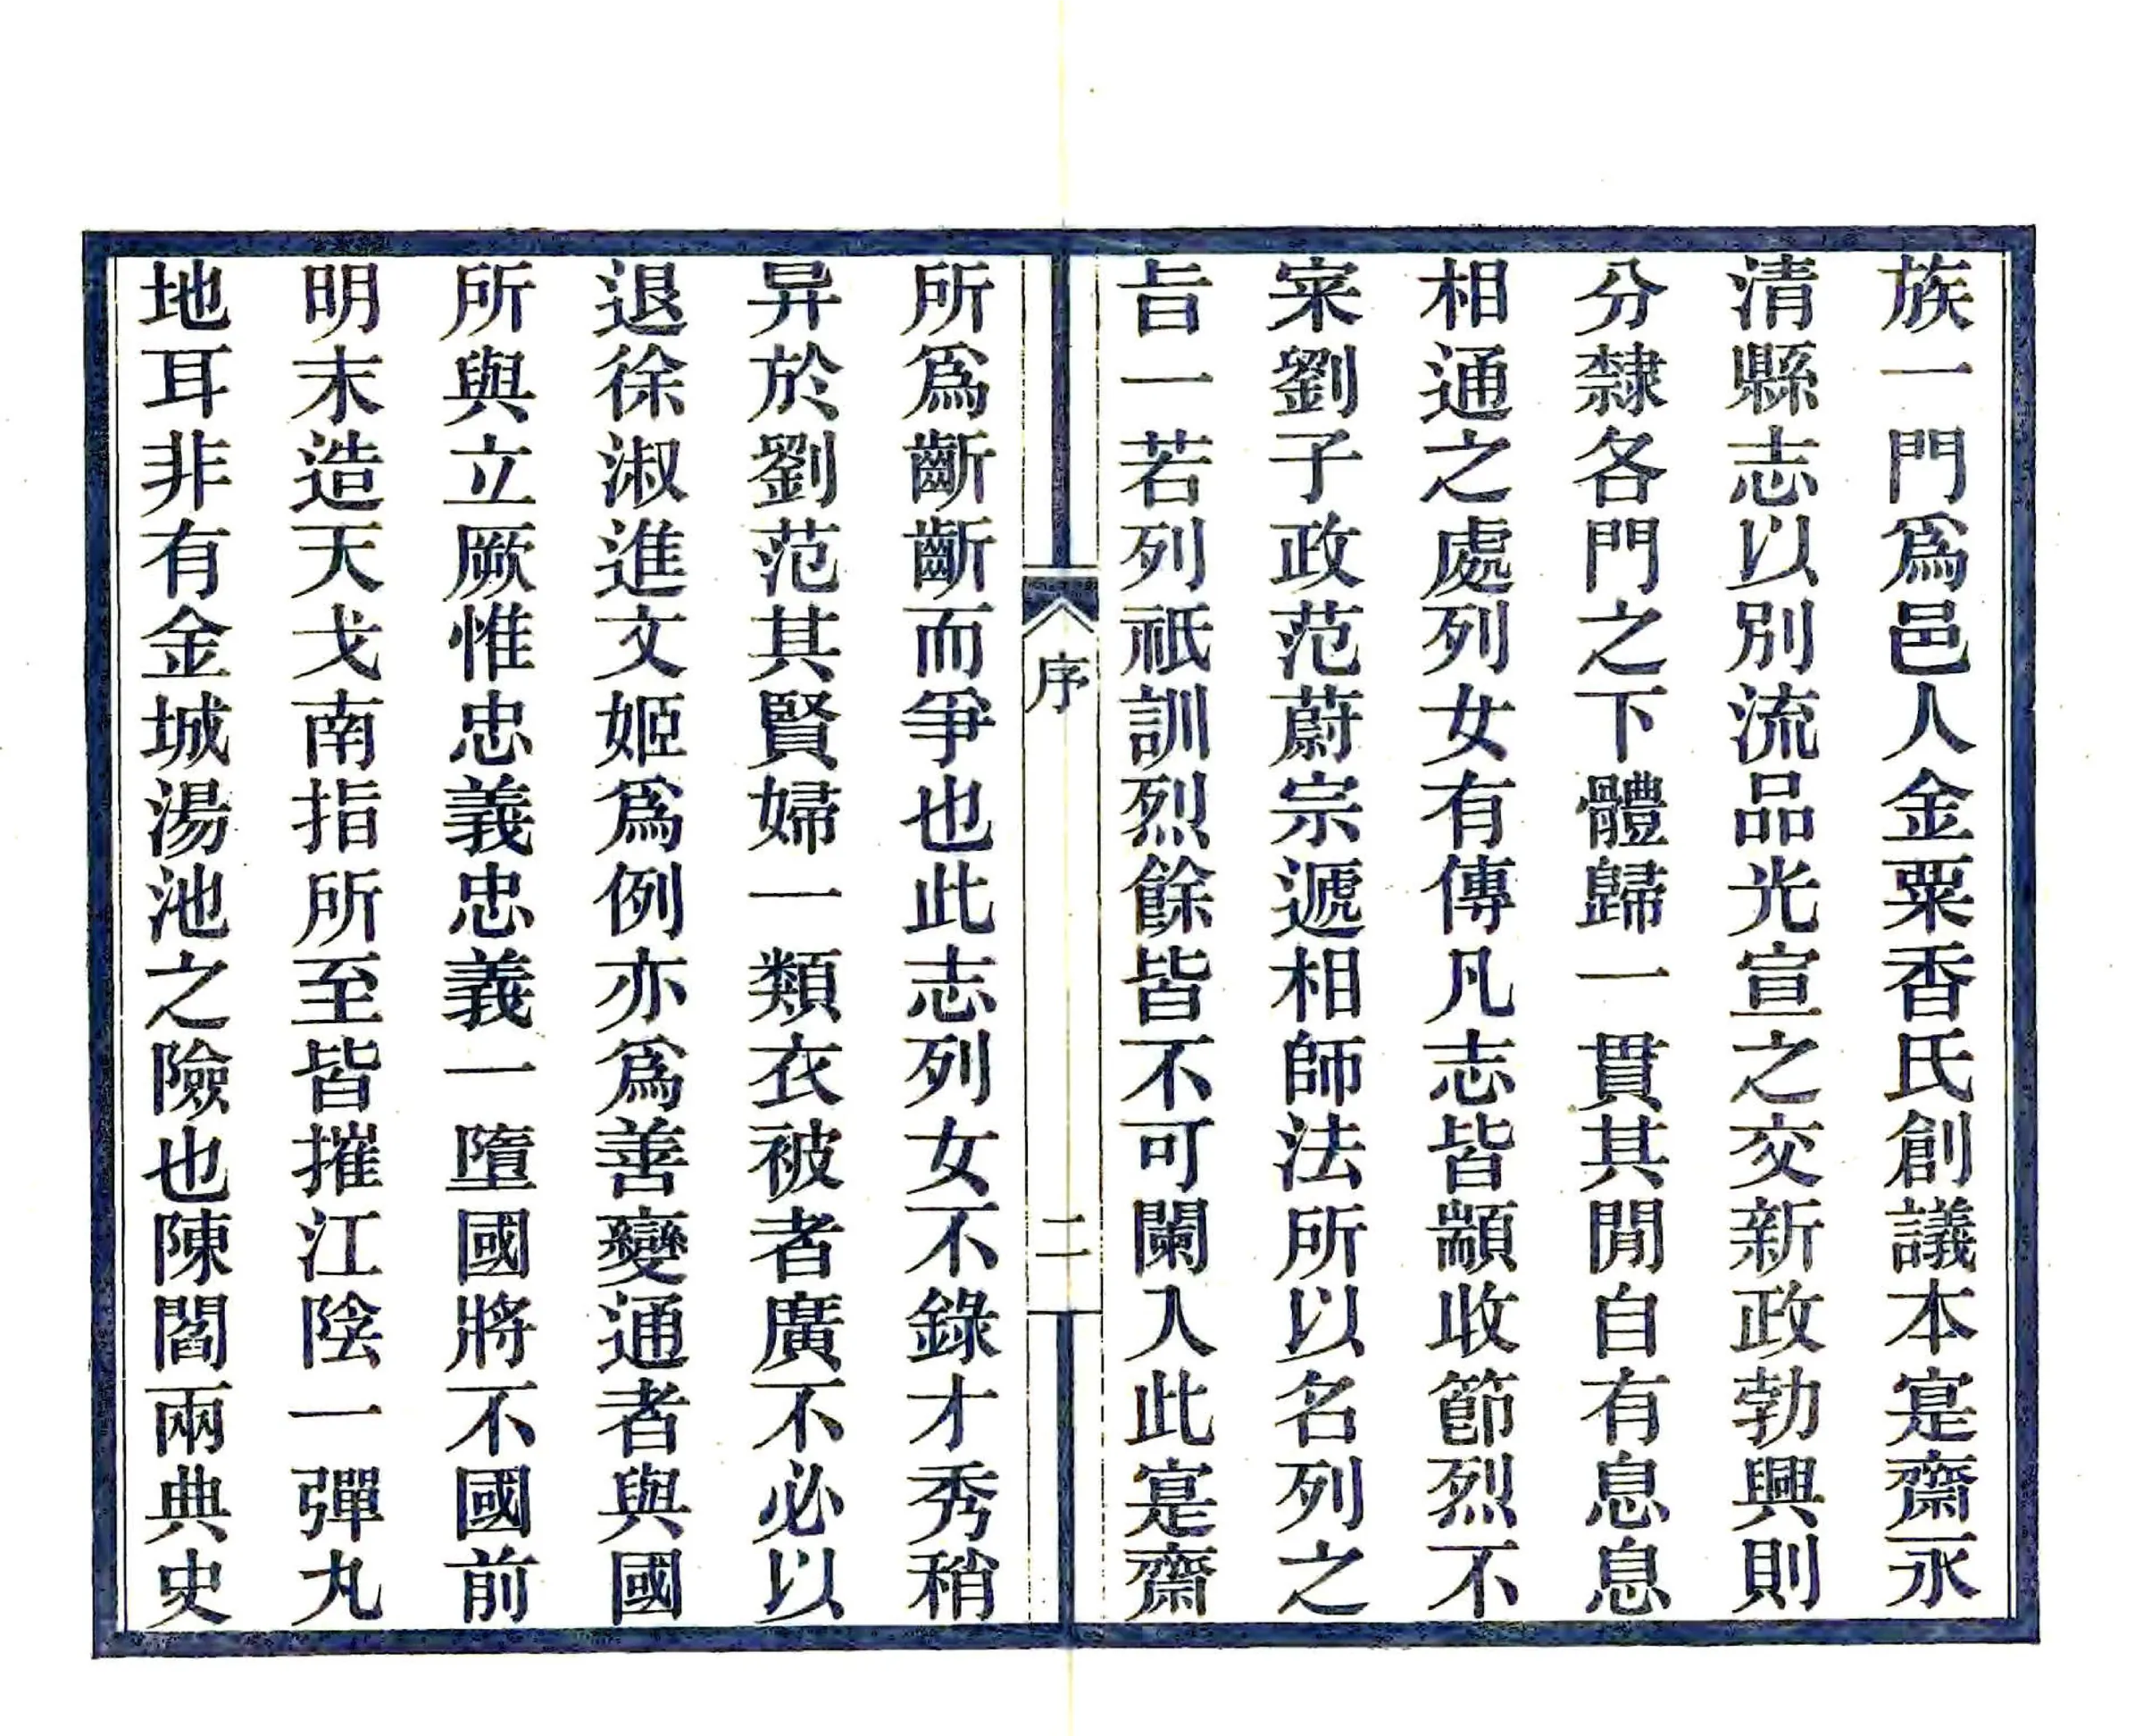 族一門爲邑人金粟香氏創議本寔齋永
清縣志以別流品光宣之交新政勃興則
分隸各門之下體歸一貫其閒自有息息
相通之處列女有傳凡志皆顓收節烈不
宷劉子政范蔚宗遞相師法所以名列之
旨一若列祇訓烈餘皆不可闌入此寔齋
序
二
所爲齗齗而爭也此志列女不錄才秀稍
异於劉范其賢婦一類衣被者廣不必以
退徐淑進文姬爲例亦爲善變通者與國
所與立厥惟忠義忠義一墮國將不國前
明末造天戈南指所至皆摧江陰一彈丸
地耳非有金城湯池之險也陳閻兩典史